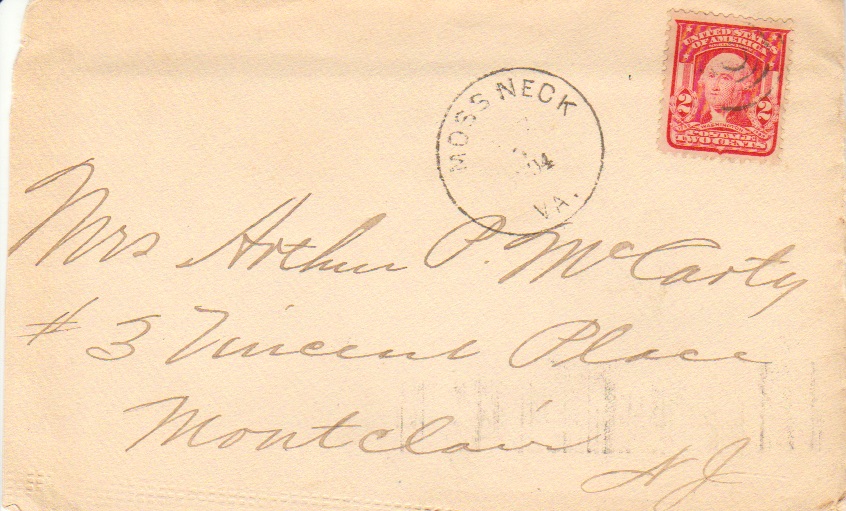 UNITED STATES
OF AMERICA
2 2
POSTAGE
TWO CENTS
MOSS NECK
04
VA.
Mrs Arthur P. McCarty
# 3 Vincent Place
Montclair
N J